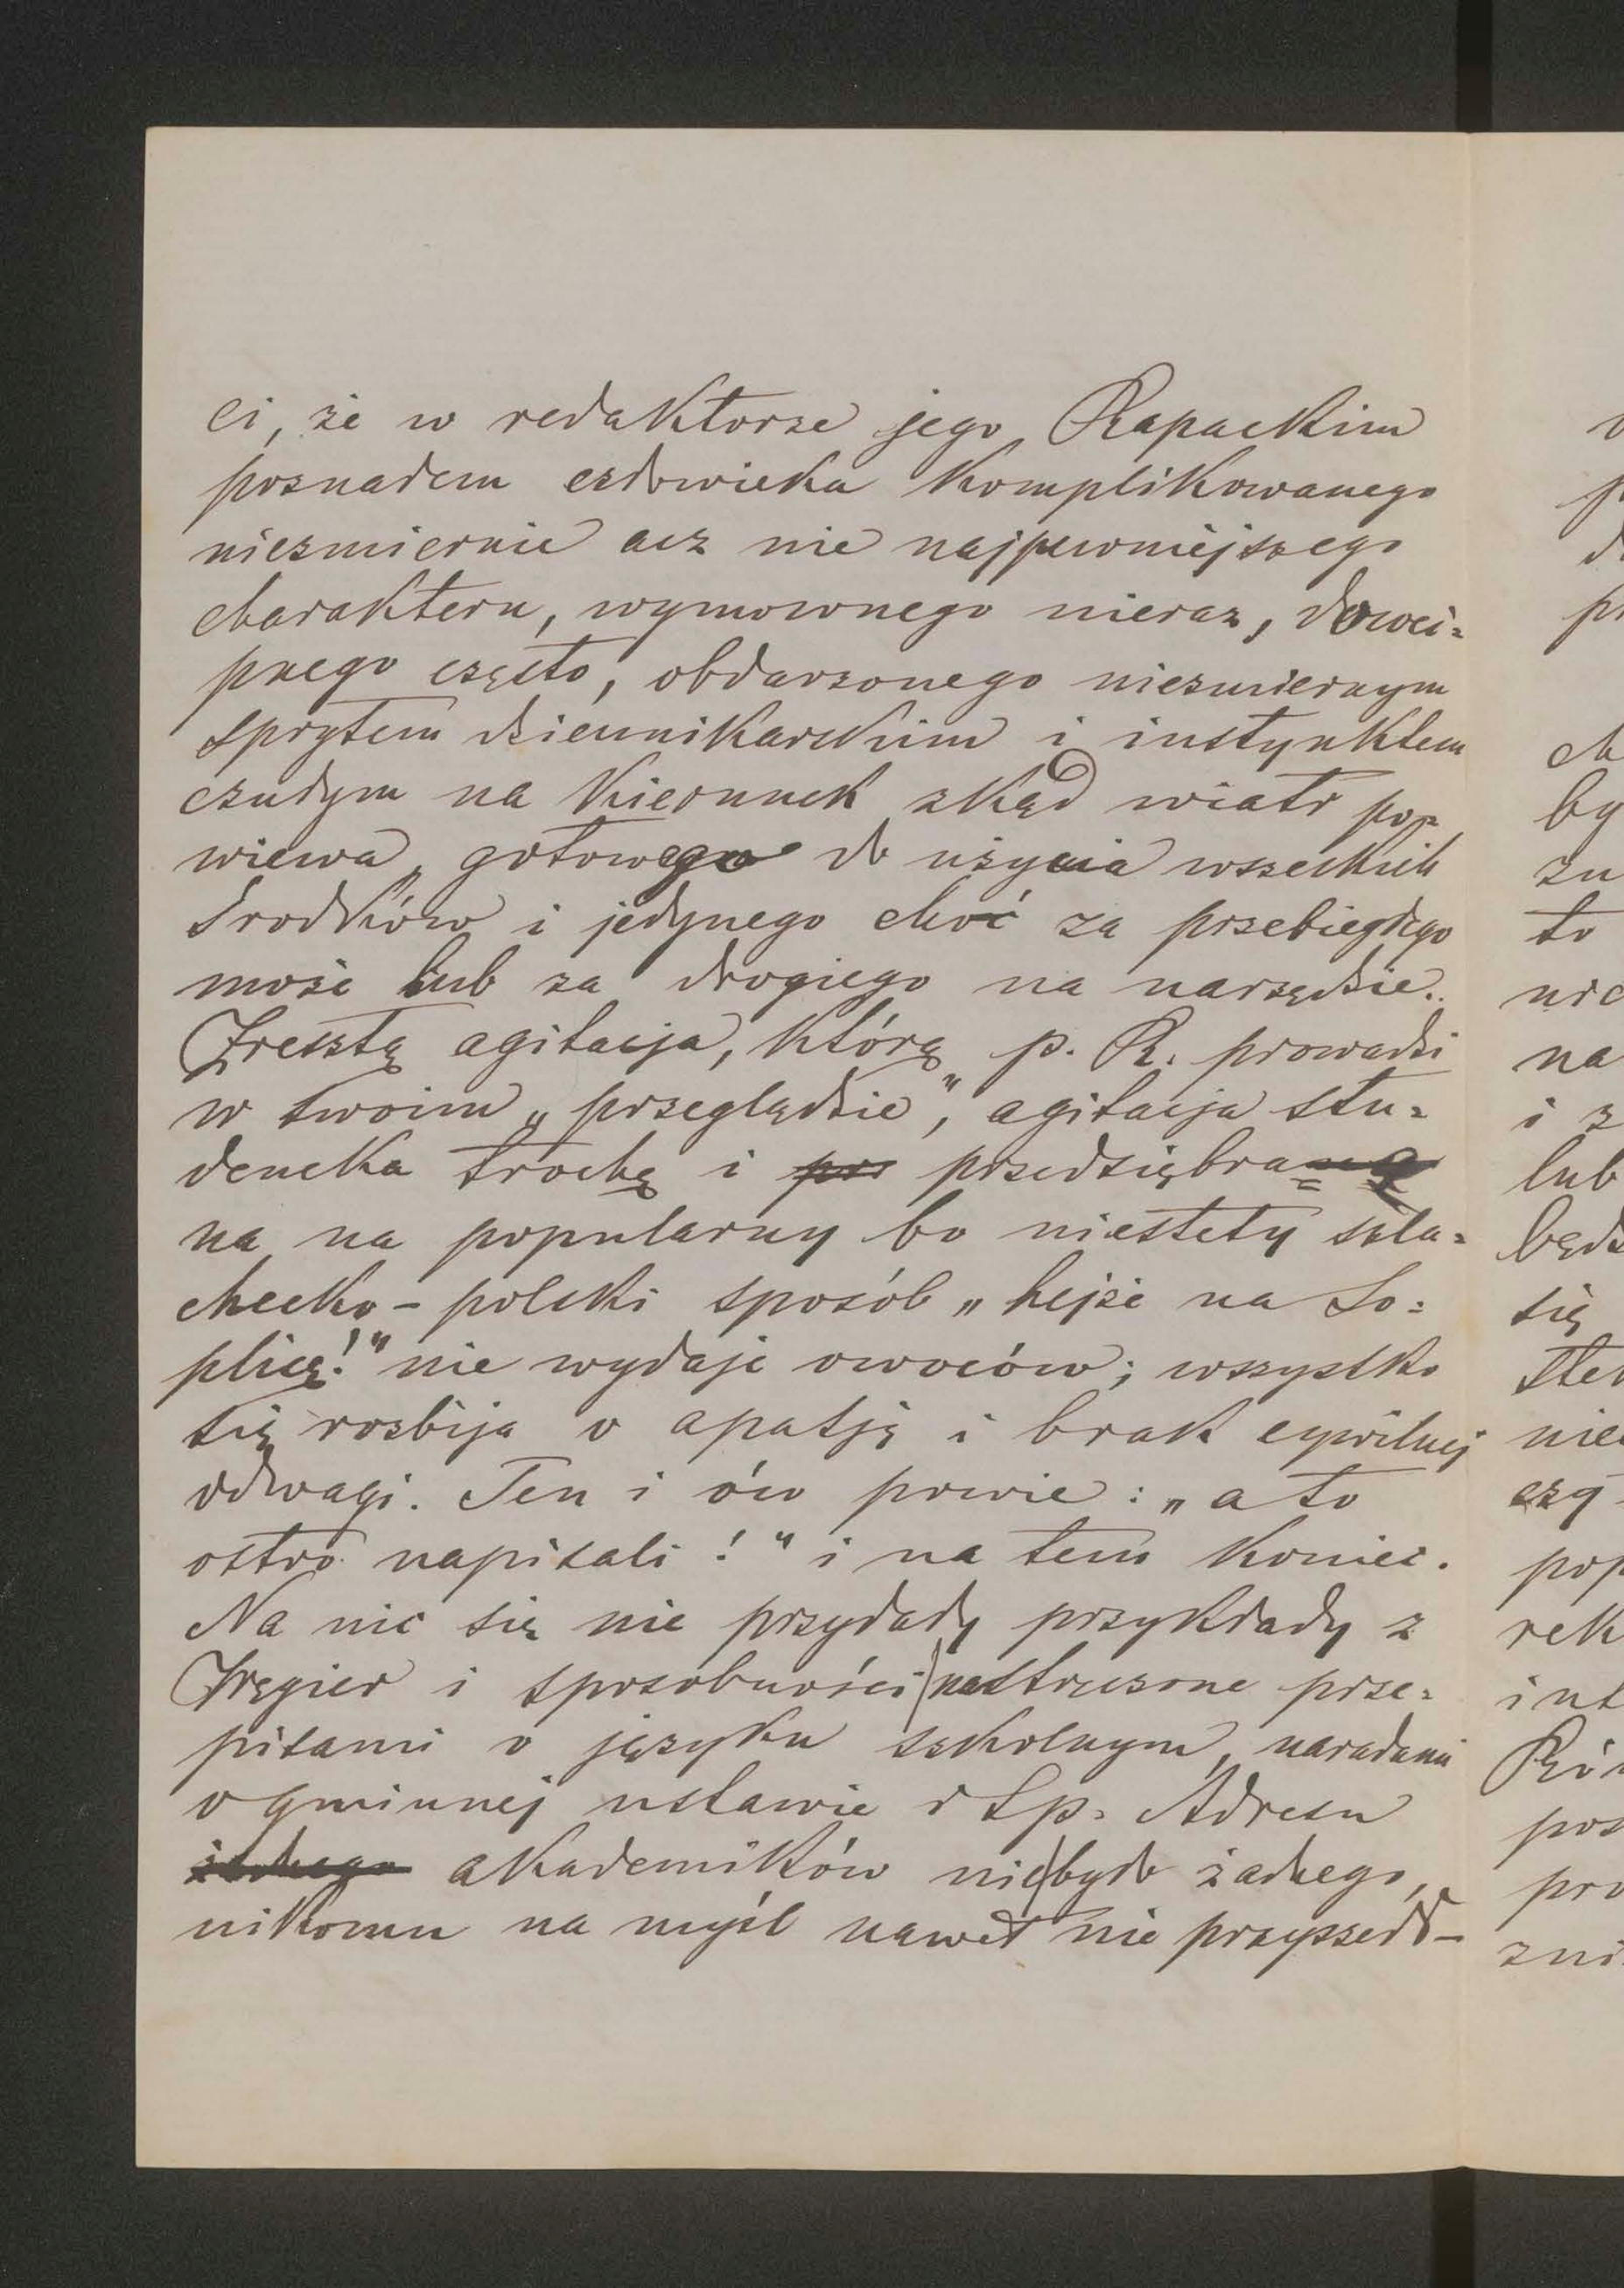 ci, że w redaktorze jego Rapackim
poznałem człowieka komplikowanego
niezmiernie acz nie najpewniejszego
charakteru, wymownego nieraz, dowci=
pnego często, obdarzonego niezmiernym
sprytem dziennikarskim i instynktem
czułym na kierunek zkąd wiatr po=
wiewa, gotowego do użycia wszelkich
środków i jedynego choć za przebiegłego
może lub za drogiego na narzędzie.
Zresztą agitacja, którą p. R. prowadzi
w twoim „przeglądzie", agitacja stu=
dencka trochę i prz przedsiębra=
na na popularny bo niestety szla=
checko-polski sposób „hejże na So=
plicę!" nie wydaje owoców; wszystko
się rozbija o apatję i brak cywilnej
odwagi. Ten i ów powie: „a to
ostro napisali!" i na tem koniec.
Na nic się nie przydały przykłady z
Węgier i sposobności nastręczone prze=
pisami o języku szkolnym, naradami
o gminnej ustawie i t.p. Adresu
żadnego akademików nie było żadnego,
nikomu na myśl nawet nie przyszedł-
v
p
d
pr
ch
by
zu
to
nie
na
i z
lub
będz
się
ster
nie
czy
pop
rek
int
Ró
pos
pro
zni